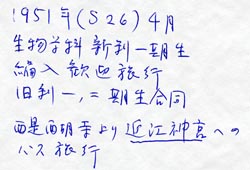 1951年(S26)4月
生物学科 新制一期生
編入歓迎旅行
旧制一、二期生合同
西明寺より近江神宮への
バス旅行